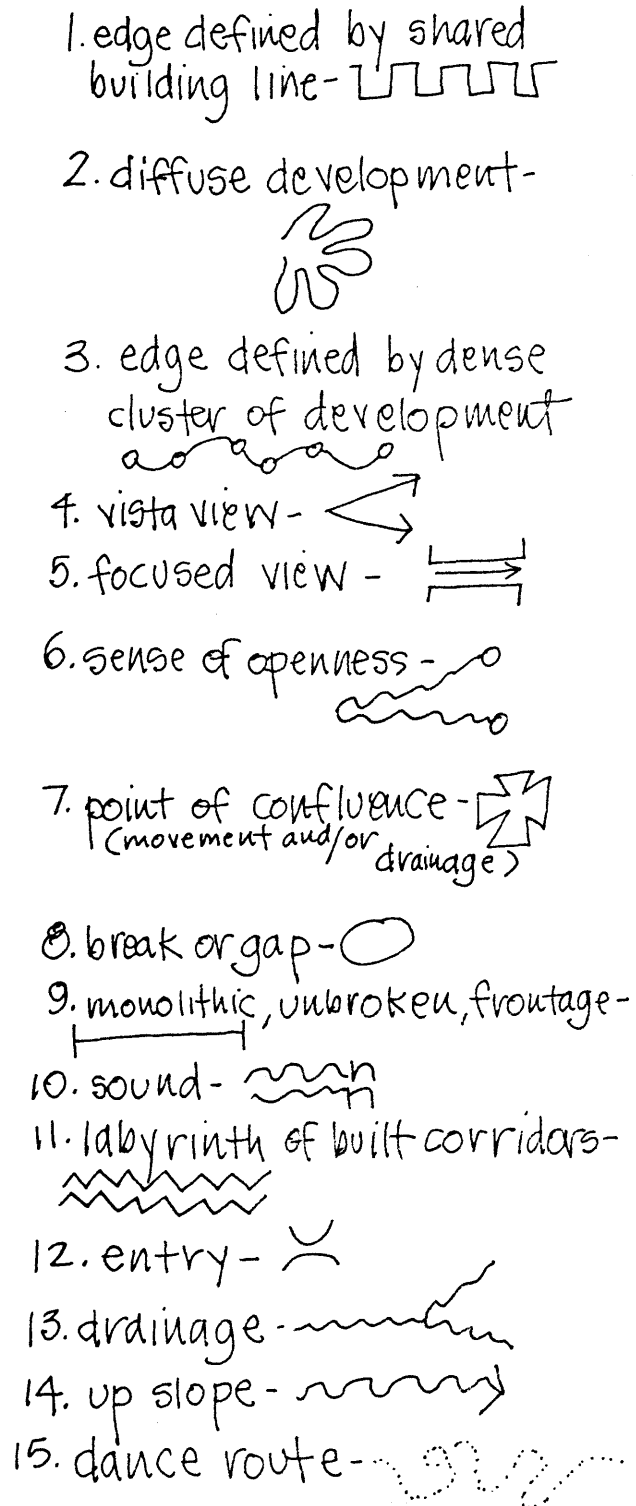 1. edge defined by shared
building line-
2. diffuse development-
3. edge defined by dense
cluster of development
4. vista view-
5. focused view -
6. sense of openness-
7. point of confluence-
(movement and/or
drainage)
8. break or gap-
9. monolithic, unbroken, frontage-
10. sound-
11. labyrinth of built corridors-
12. entry-
13. drainage-
14. up slope-
15. dance route-